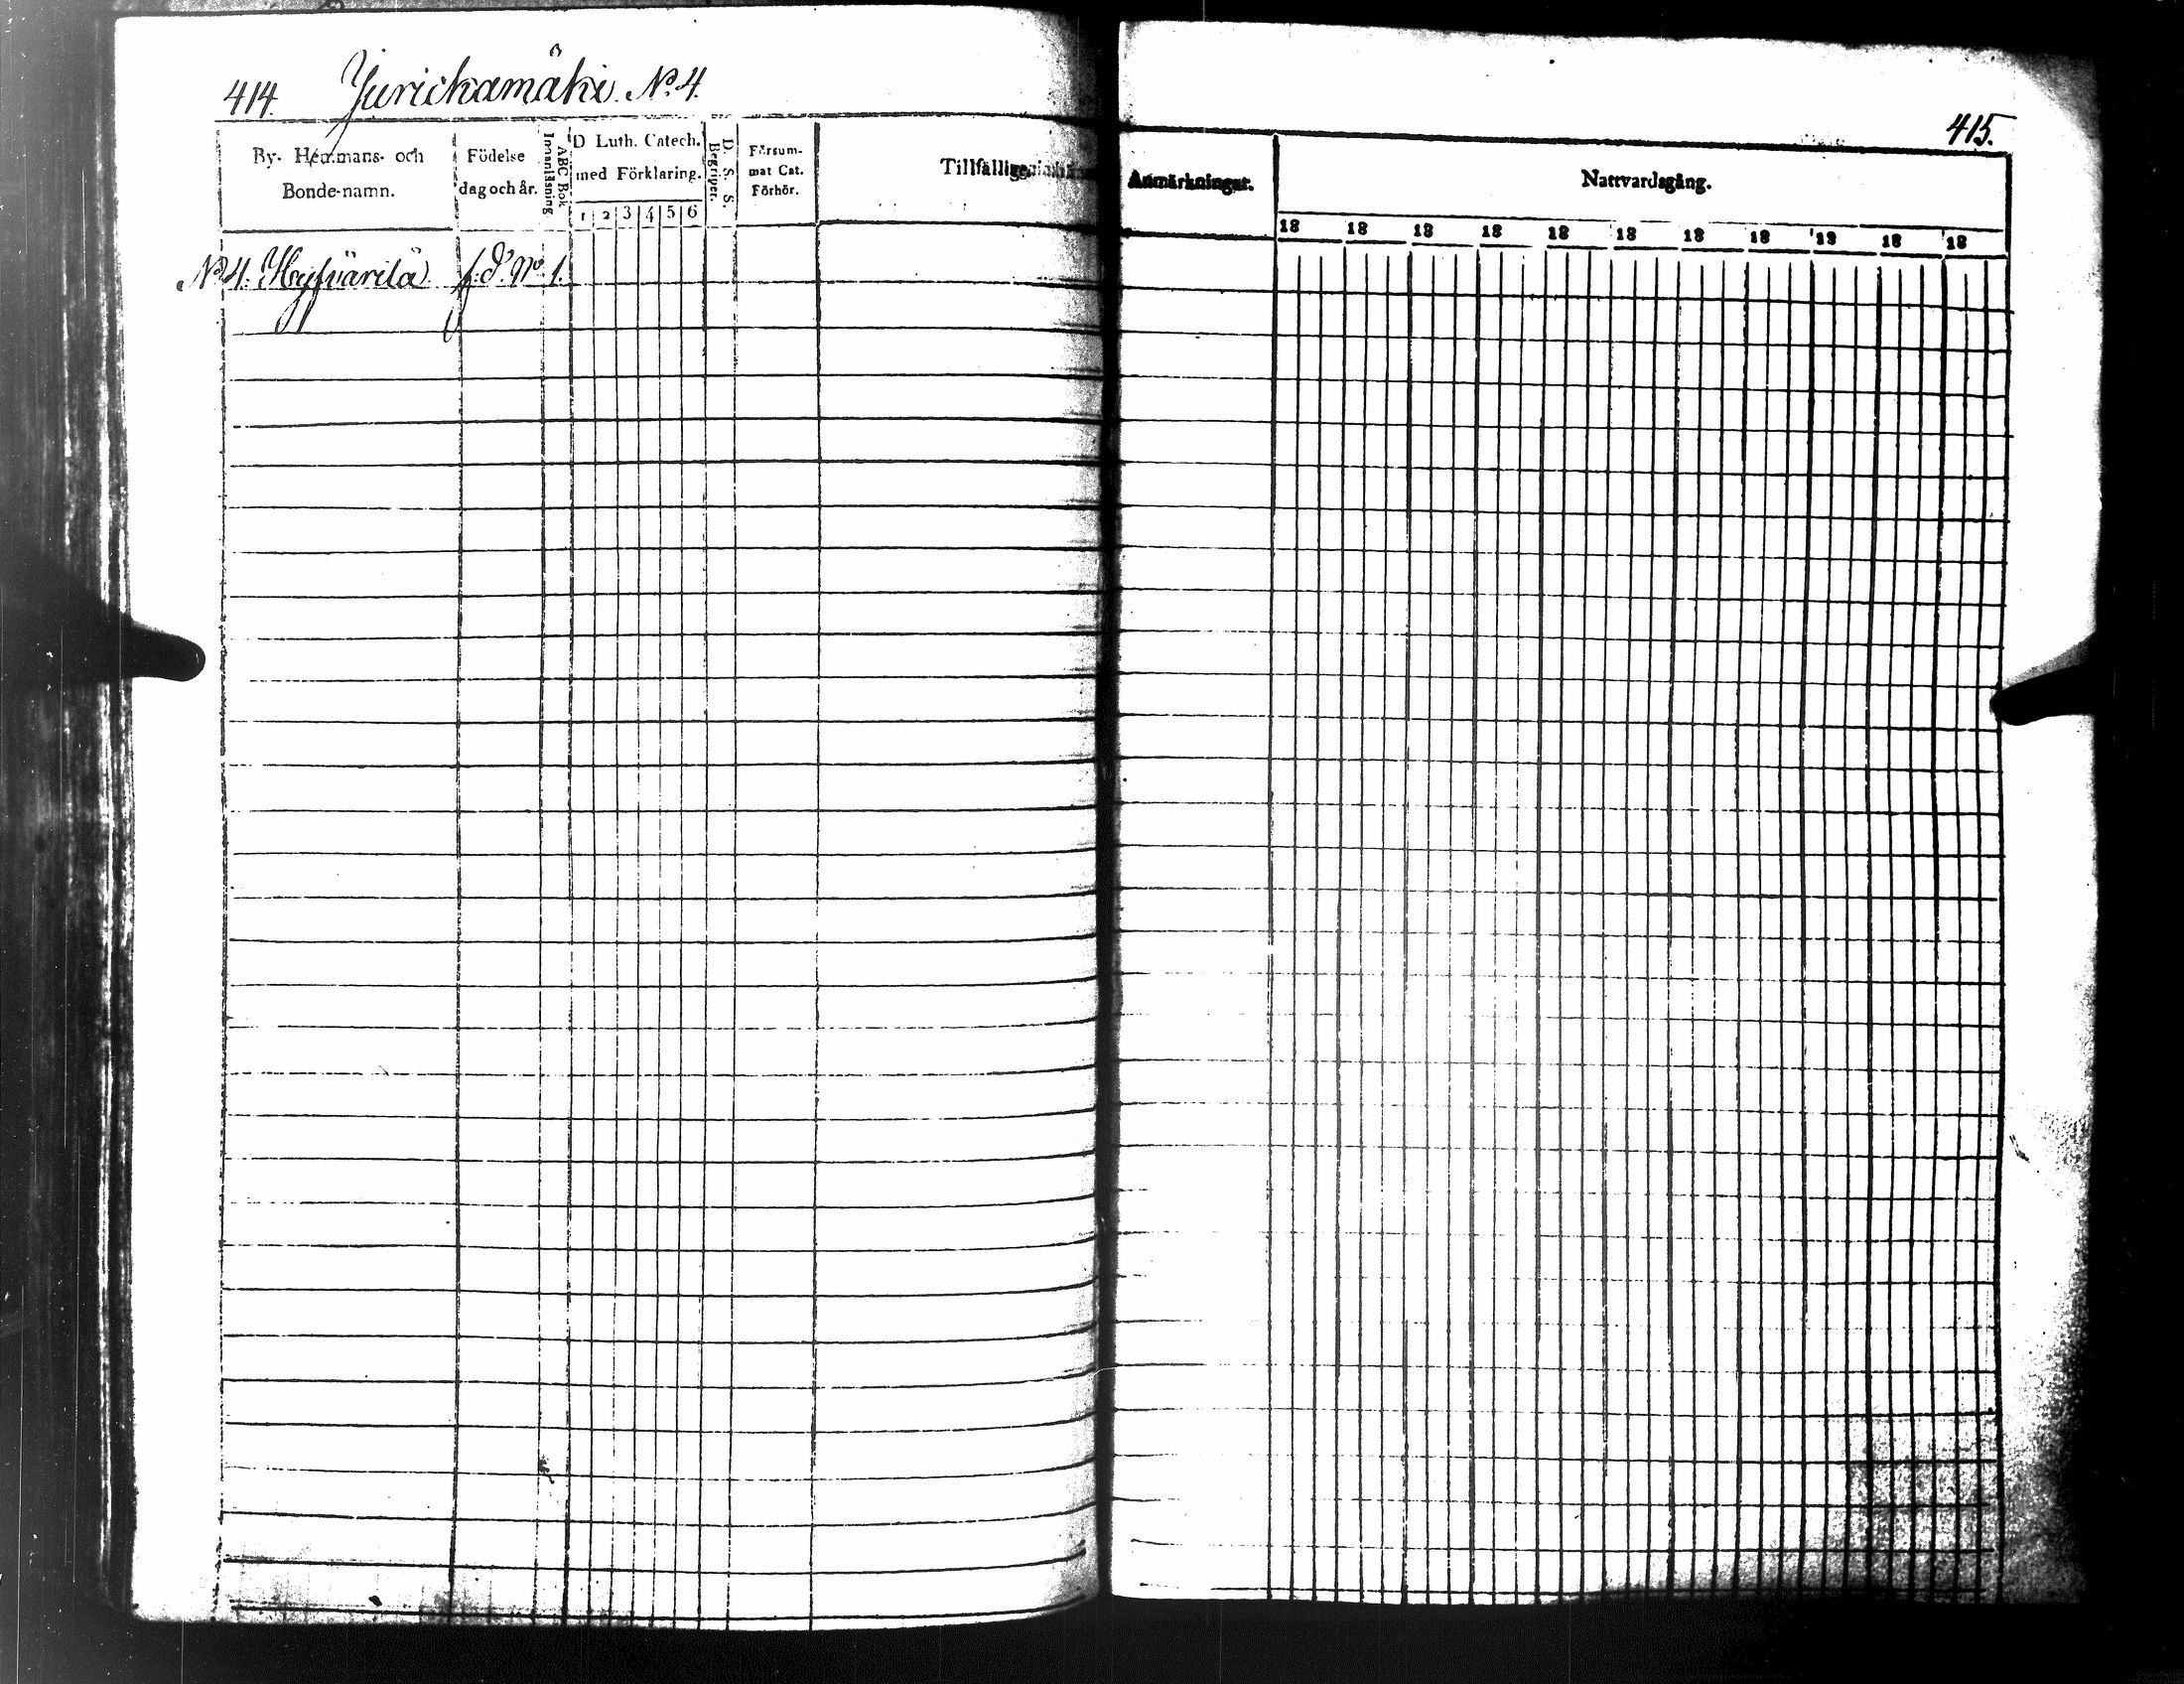 414. Jurickamäki. No 4.
415.
By- Hemmans- och Bonde-namn.
Födelse dag och år.
Innanläsning
ABC Bok
D Luth. Catech. med Förklaring.
1 2 3 4 5 6
D. S. S. Begriper.
Försum- mat Cat. Förhör.
Tillfällige
Anmärkningar.
Nattvardsgång.
18 18 18 18 18 18 18 18 18 18 18
No 4. Hyfvärilä f. d. No 1.